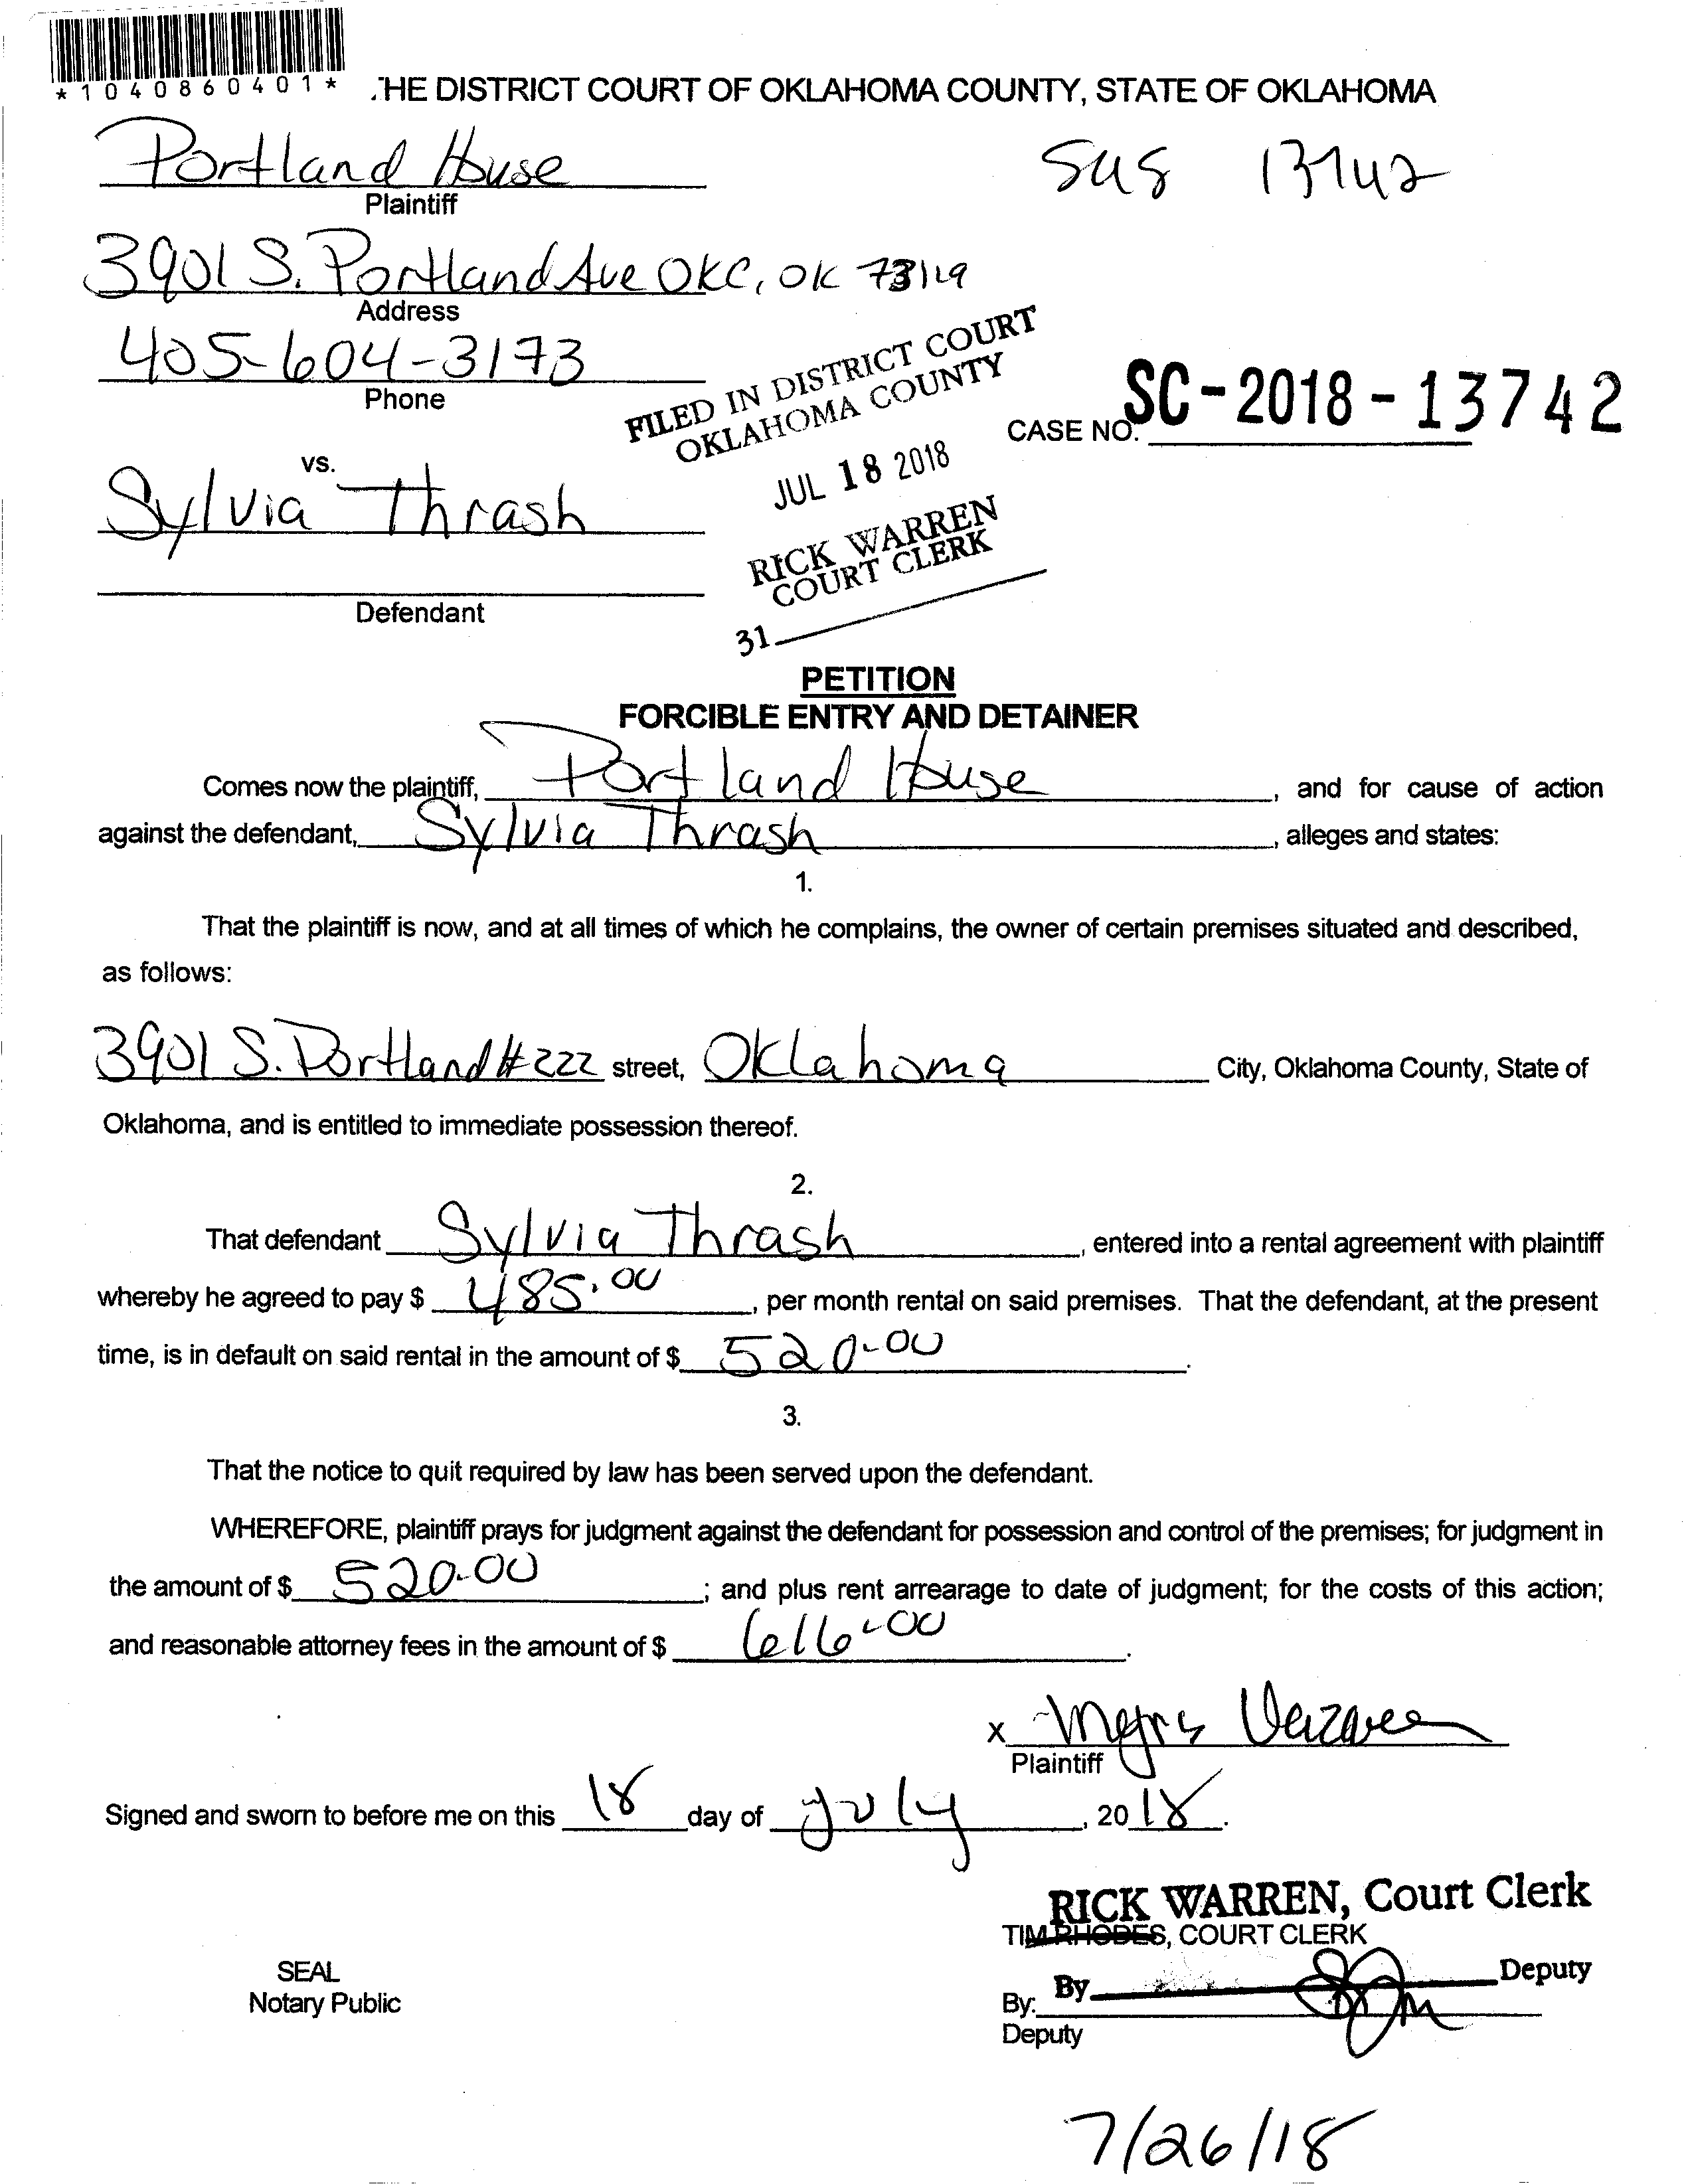 *1040860401*
.HE DISTRICT COURT OF OKLAHOMA COUNTY, STATE OF OKLAHOMA
Portland House
Plaintiff
13742
3901 S. Portland Ave OKC, OK 73119
Address
405-604-3173
Phone
FILED IN DISTRICT COURT
OKLAHOMA COUNTY
JUL 18 2018
RICK WARREN
COURT CLERK
31
CASE NO. SC-2018-13742
vs.
Sylvia Thrash
Defendant
PETITION
FORCIBLE ENTRY AND DETAINER
Comes now the plaintiff, Portland House, and for cause of action
against the defendant, Sylvia Thrash, alleges and states:
1.
That the plaintiff is now, and at all times of which he complains, the owner of certain premises situated and described,
as follows:
3901 S. Portland #222 street, Oklahoma City, Oklahoma County, State of
Oklahoma, and is entitled to immediate possession thereof.
2.
That defendant Sylvia Thrash, entered into a rental agreement with plaintiff
whereby he agreed to pay $ 485.00, per month rental on said premises. That the defendant, at the present
time, is in default on said rental in the amount of $ 520-00.
3.
That the notice to quit required by law has been served upon the defendant.
WHEREFORE, plaintiff prays for judgment against the defendant for possession and control of the premises; for judgment in
the amount of $ 520-00; and plus rent arrearage to date of judgment; for the costs of this action;
and reasonable attorney fees in the amount of $ 616-00.
x
Plaintiff
Signed and sworn to before me on this 18 day of July, 2018.
RICK WARREN, Court Clerk
TIM RHODES, COURT CLERK
SEAL
Notary Public
By Deputy
By:
Deputy
7/26/18